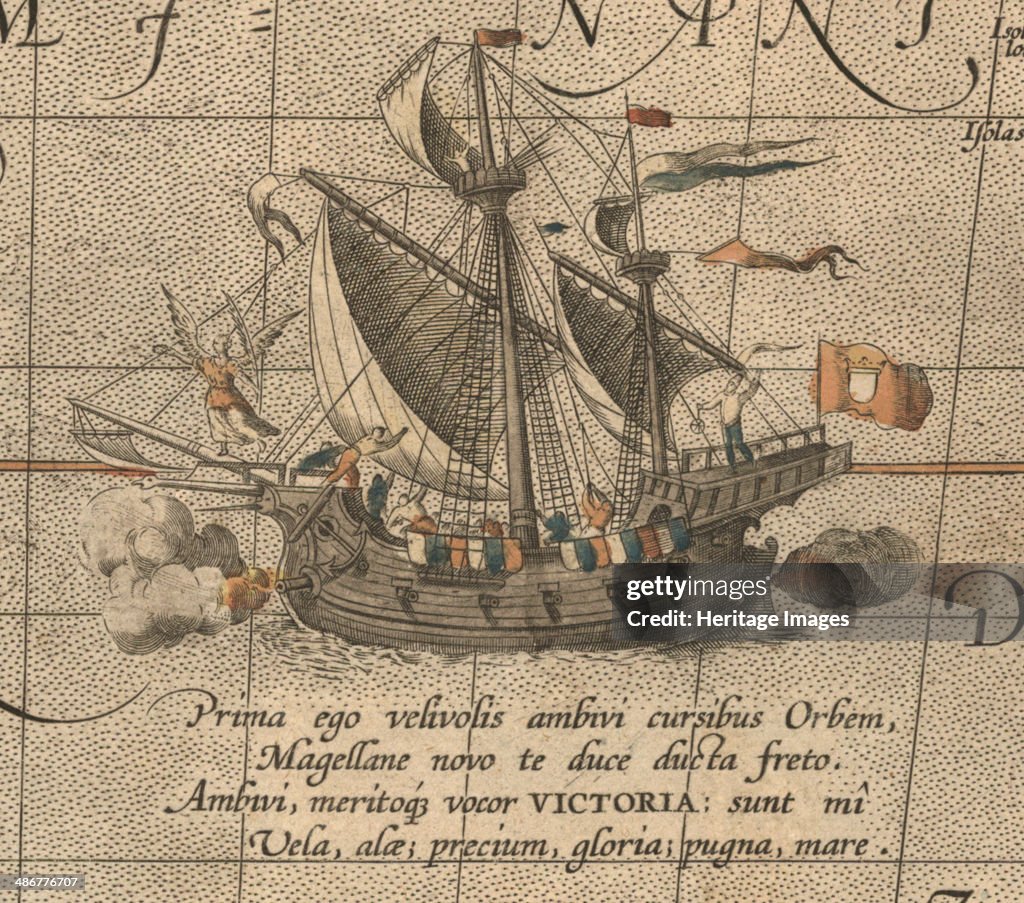 Isolas
gettyimages®
Credit: Heritage Images
Prima ego velivolis ambivi cursibus Orbem,
Magellane novo te duce ducta freto.
Ambivi, meritoq; vocor VICTORIA: sunt mî
Vela, alæ; precium, gloria; pugna, mare.
486776707